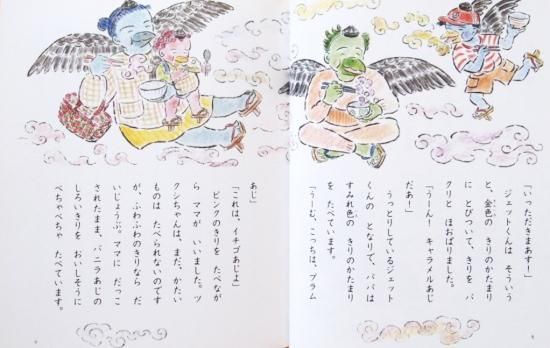 「いっただきまあす！」
ジェットくんは そういう
と、金色の きりのかたまり
に とびついて、きりを パ
クリと ほおばりました。
「うーん！ キャラメルあじ
だあ！」
うっとりしているジェット
くんの となりで、パパは
すみれ色の きりのかたまり
を たべています。
「うーむ、こっちは、プラム
あじ」
「これは、イチゴあじよ」
ピンクのきりを たべなが
ら ママが いいました。ツ
クシちゃんは、まだ、かたい
ものは たべられないのです
が、ふわふわのきりなら だ
いじょうぶ。ママに だっこ
されたまま、バニラあじの
しろいきりを おいしそうに
ぺちゃぺちゃ たべています。